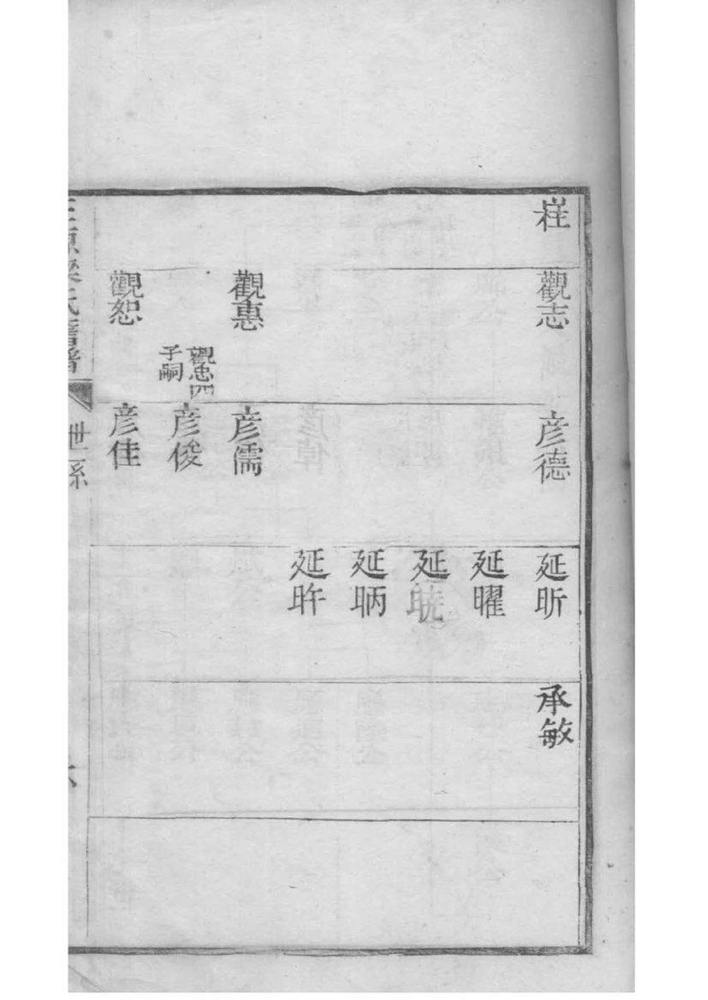 㟀
觀志
彥德
延昕
承敏
延曜
延晄
延昞
延昨
觀惠
彥儒
觀忠四
子嗣
彥俊
觀恕
彥佳
梁氏舊譜
世系
六